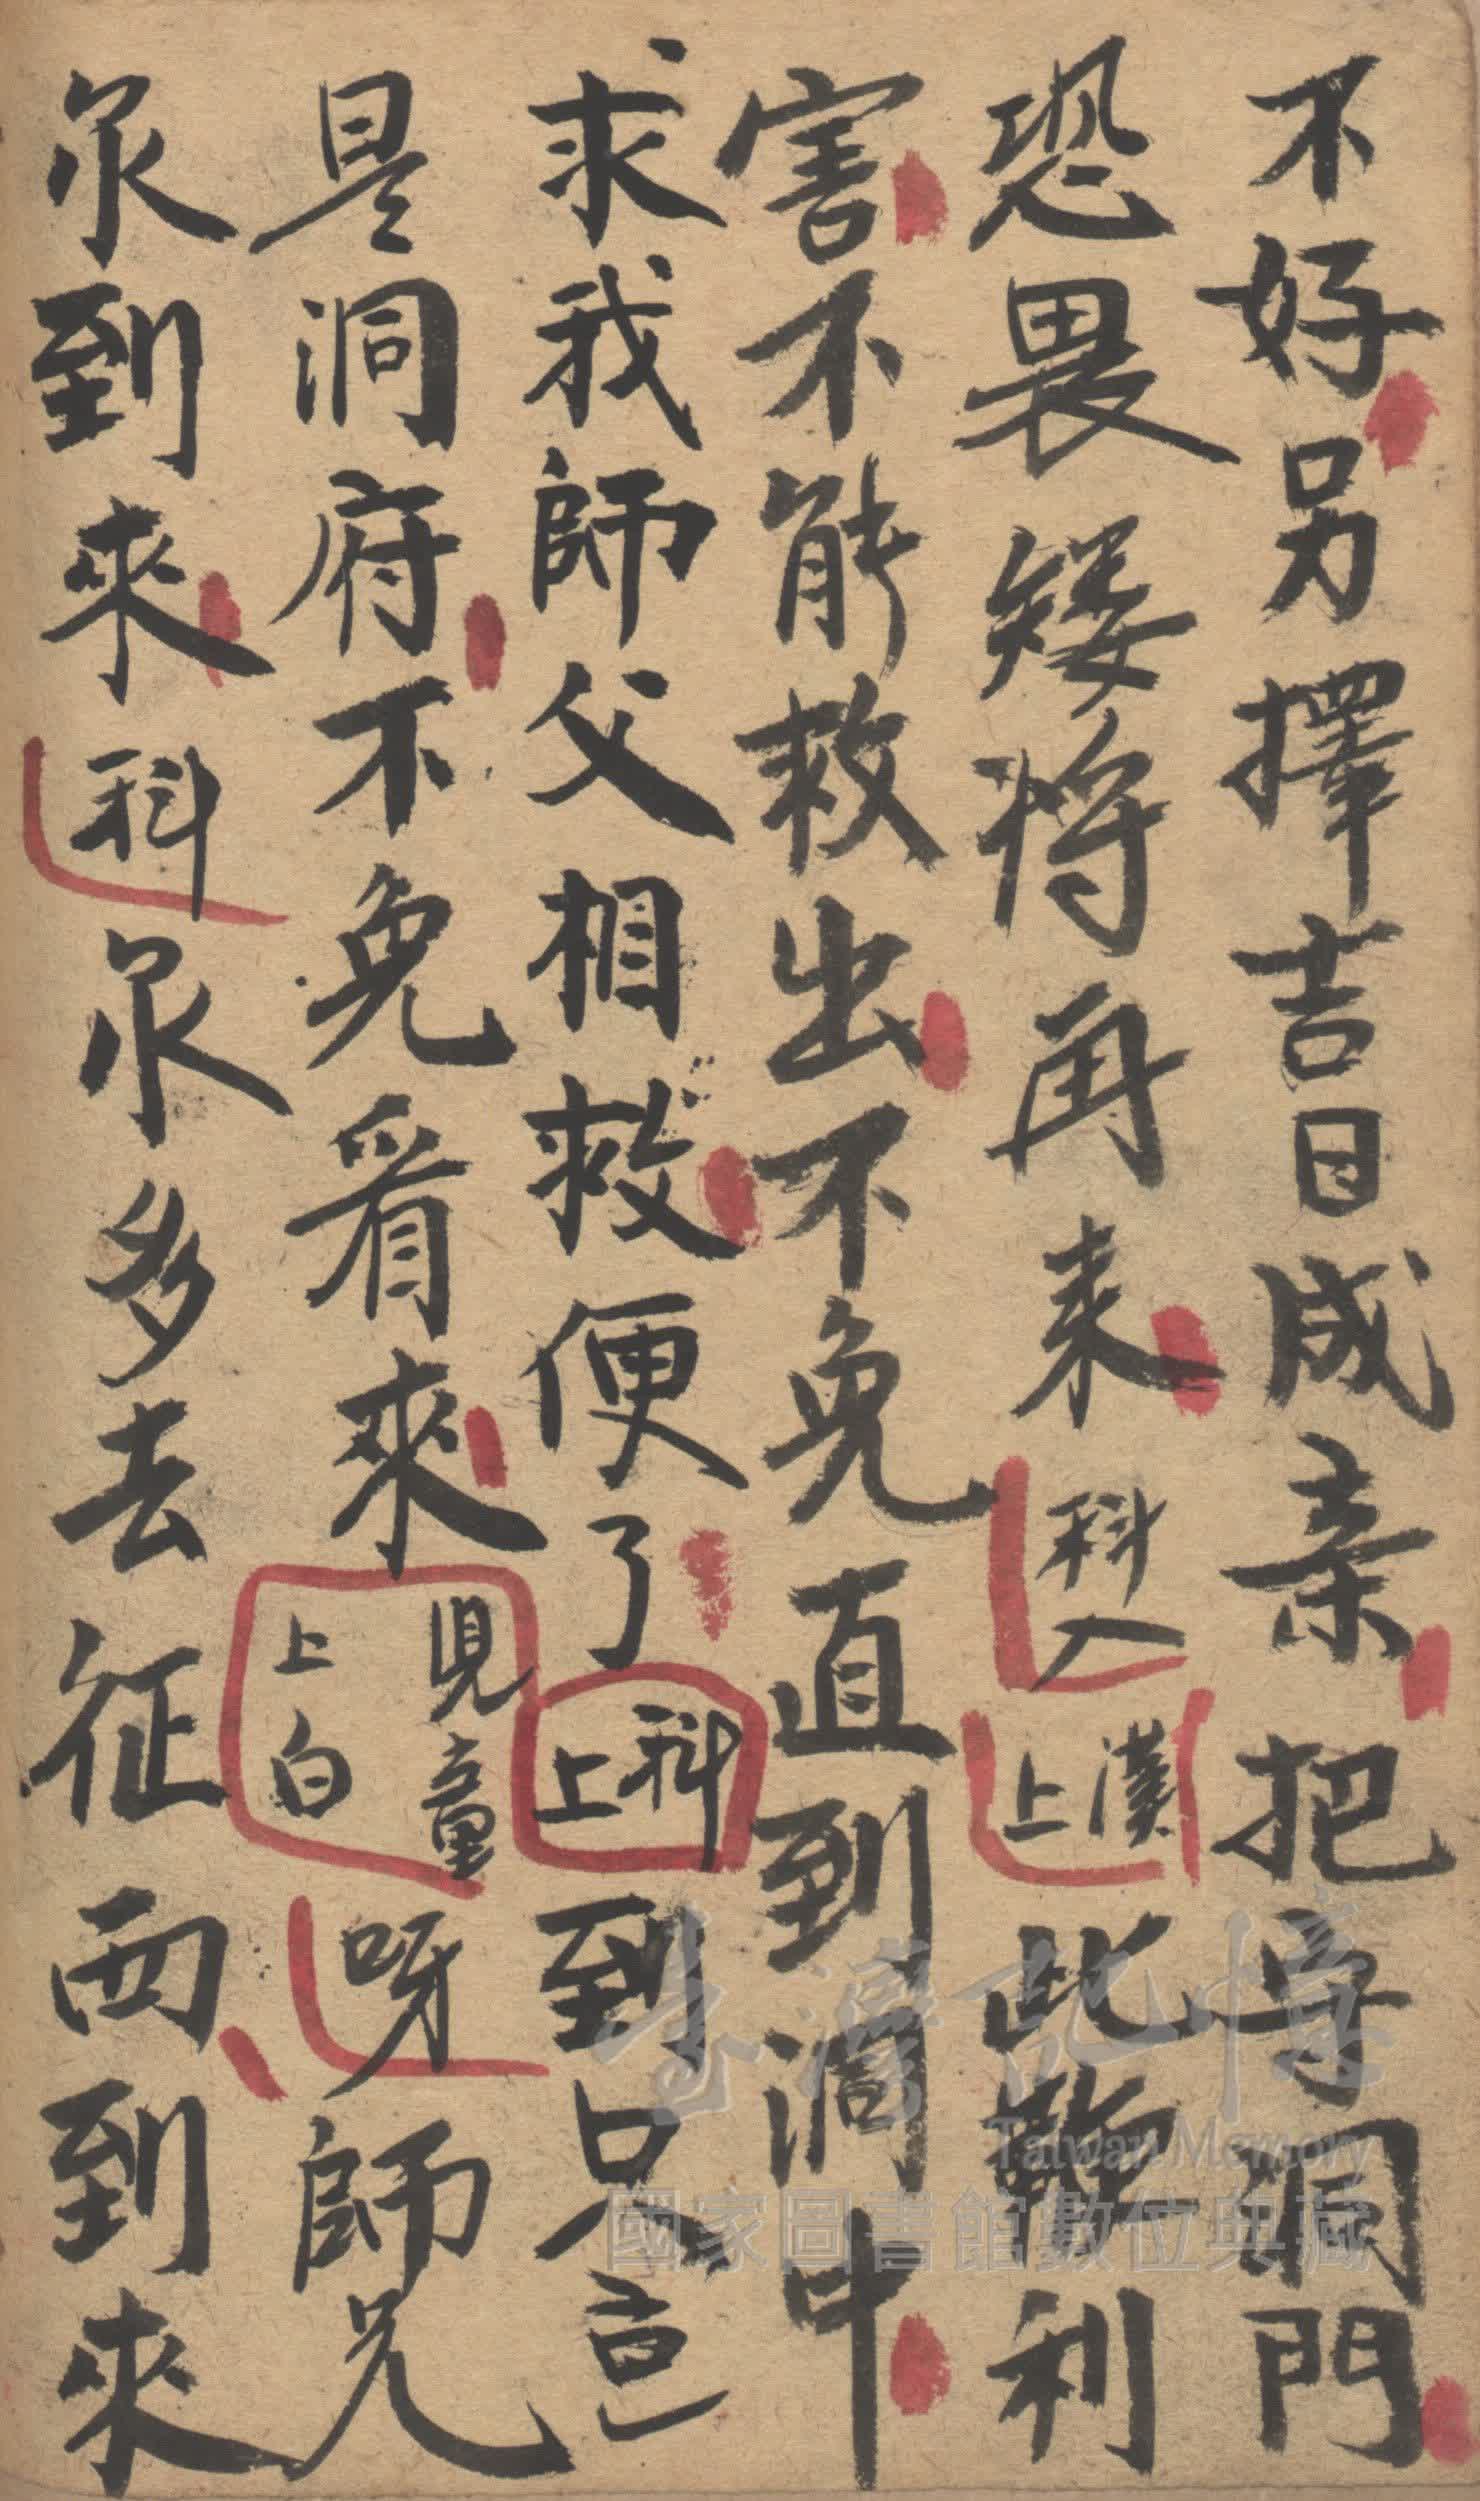 不好另擇吉日成亲把守洞門
恐畏矮将再来科入漢上此鞭利
害不能救出不免直到洞中
求我師父相救便了科上到只邑
是洞府不免看來児童上白呀師兄
汞到來科汞多去征西到來
臺灣記憶
Taiwan Memory
國家圖書館數位典藏